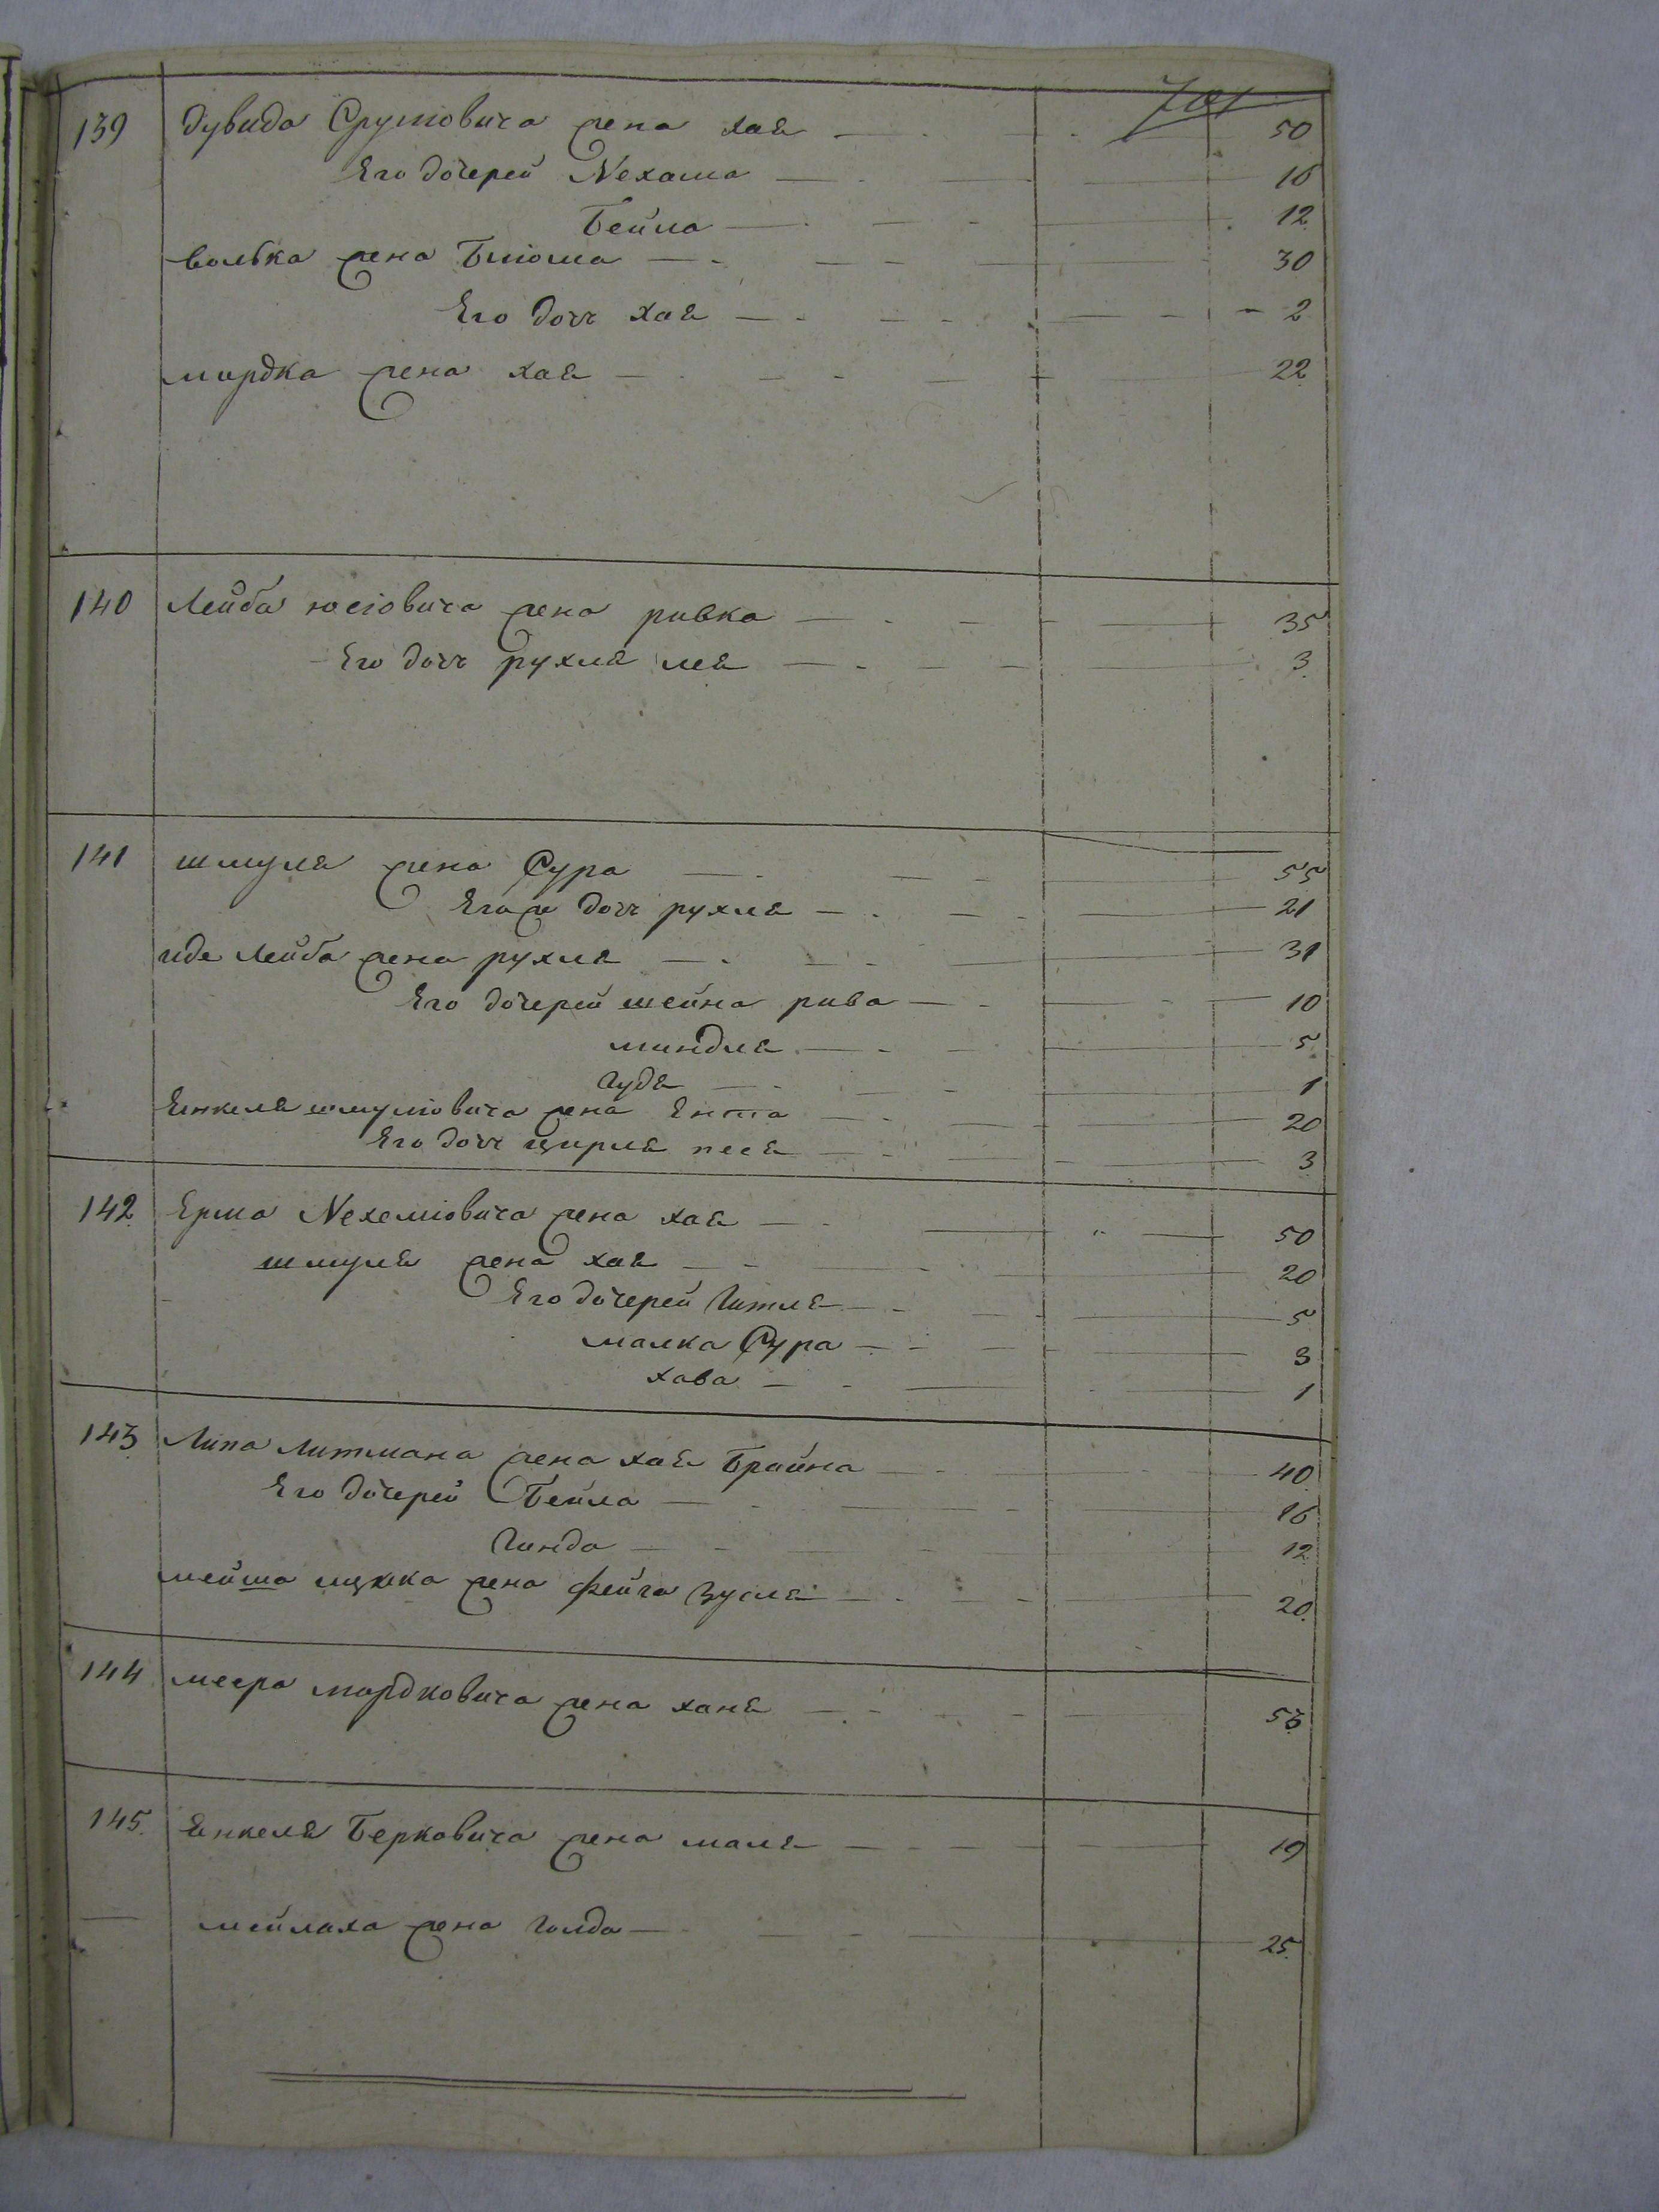 701
139 Дувида Срулiовича жена хая 50
Его дочерей Нехама 16
Бейла 12
волька жена Блюма 30
Его дочь хая 2
мордка жена хая 22
140 Лейба юсiовича жена ривка 35
Его дочь рухля лея 3
141 шмуля жена Сура 55
Егож дочь рухля 21
иде Лейба жена рухля 31
Его дочерей шейна рива 10
миндля 5
Гудя 1
Янкеля шмулiовича жена Ента 20
Его дочь цирля песя 3
142 Ерма Нехемiовича жена хая 50
шмуля жена хая 20
Его дочерей Гитля 5
малка Сура 3
хава 1
143 Липа Литмана жена хая Брайна 40
Его дочерей Бейла 16
Гинда 12
мейша жена фейга Зусля 20
144 меера мордковича жена ханя 53
145 янкеля Берковича жена маля 19
мейлаха жена Голда 25